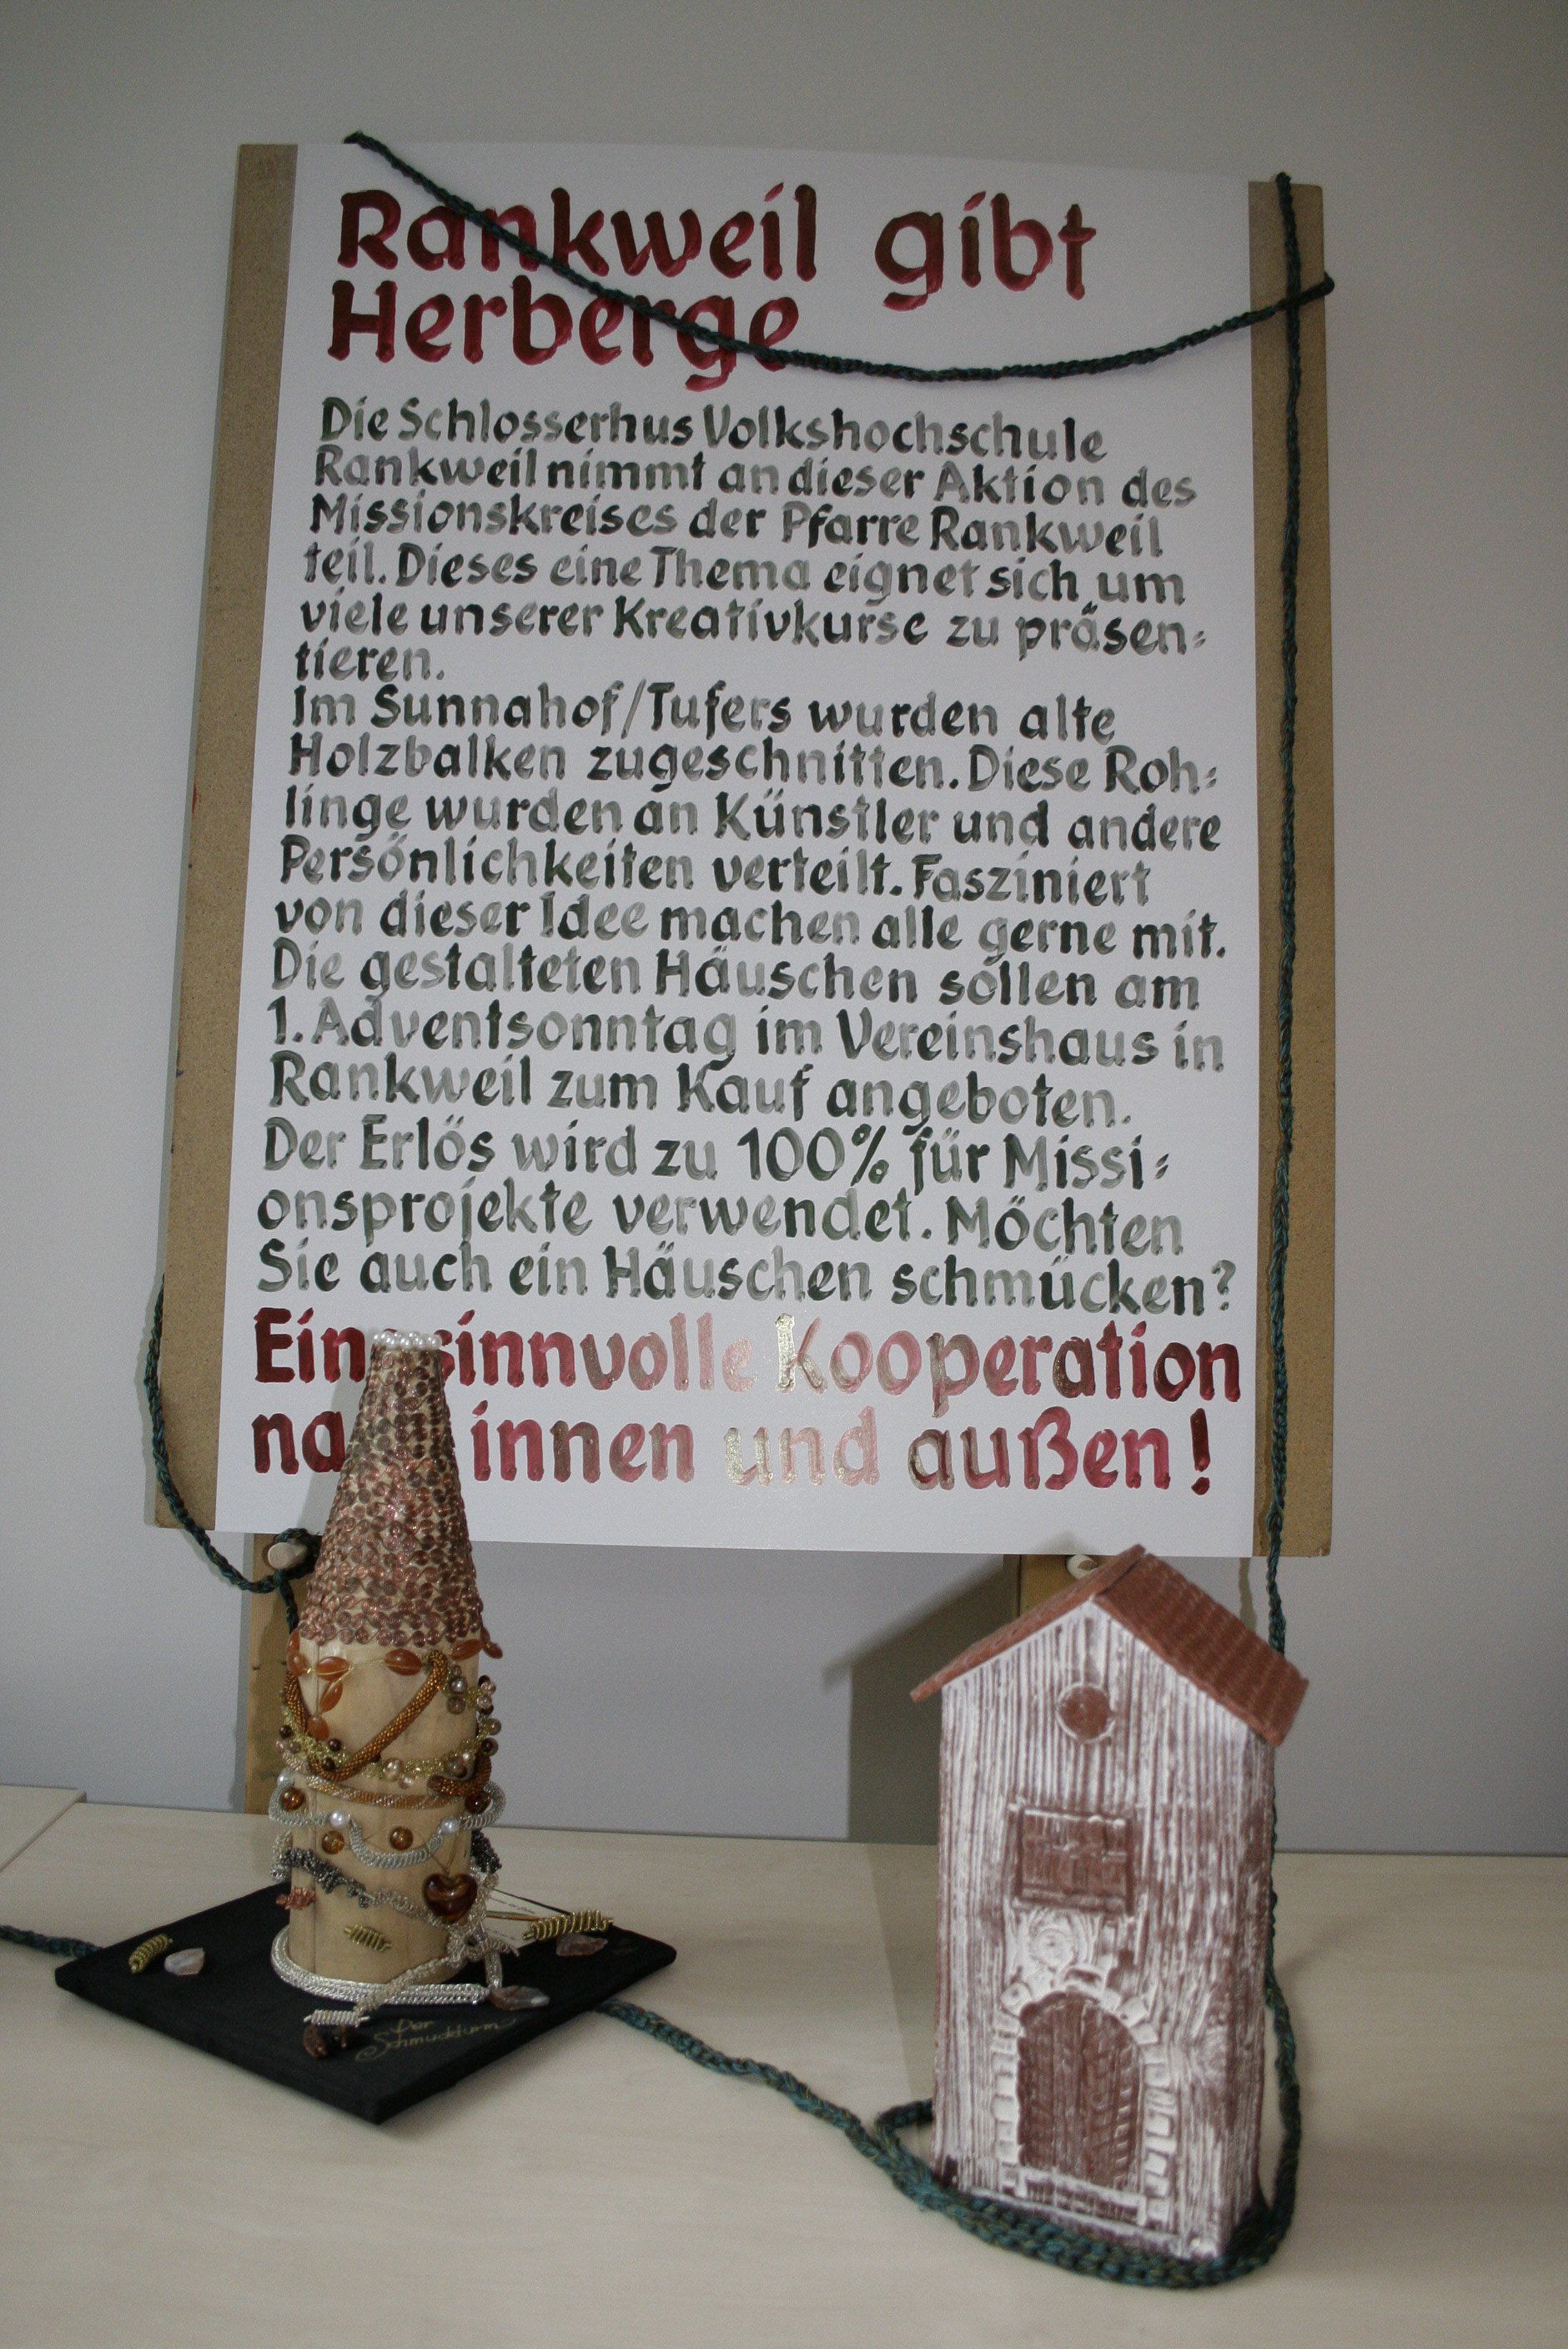 Rankweil gibt
Herberge
Die Schlosserhus Volkshochschule
Rankweil nimmt an dieser Aktion des
Missionskreises der Pfarre Rankweil
teil. Dieses eine Thema eignet sich um
viele unserer Kreativkurse zu präsen=
tieren.
Im Sunnahof/Tufers wurden alte
Holzbalken zugeschnitten. Diese Roh=
linge wurden an Künstler und andere
Persönlichkeiten verteilt. Fasziniert
von dieser Idee machen alle gerne mit.
Die gestalteten Häuschen sollen am
1. Adventsonntag im Vereinshaus in
Rankweil zum Kauf angeboten.
Der Erlös wird zu 100% für Missi=
onsprojekte verwendet. Möchten
Sie auch ein Häuschen schmücken?
Eine sinnvolle Kooperation
nach innen und außen!
Der
Schmuckturm